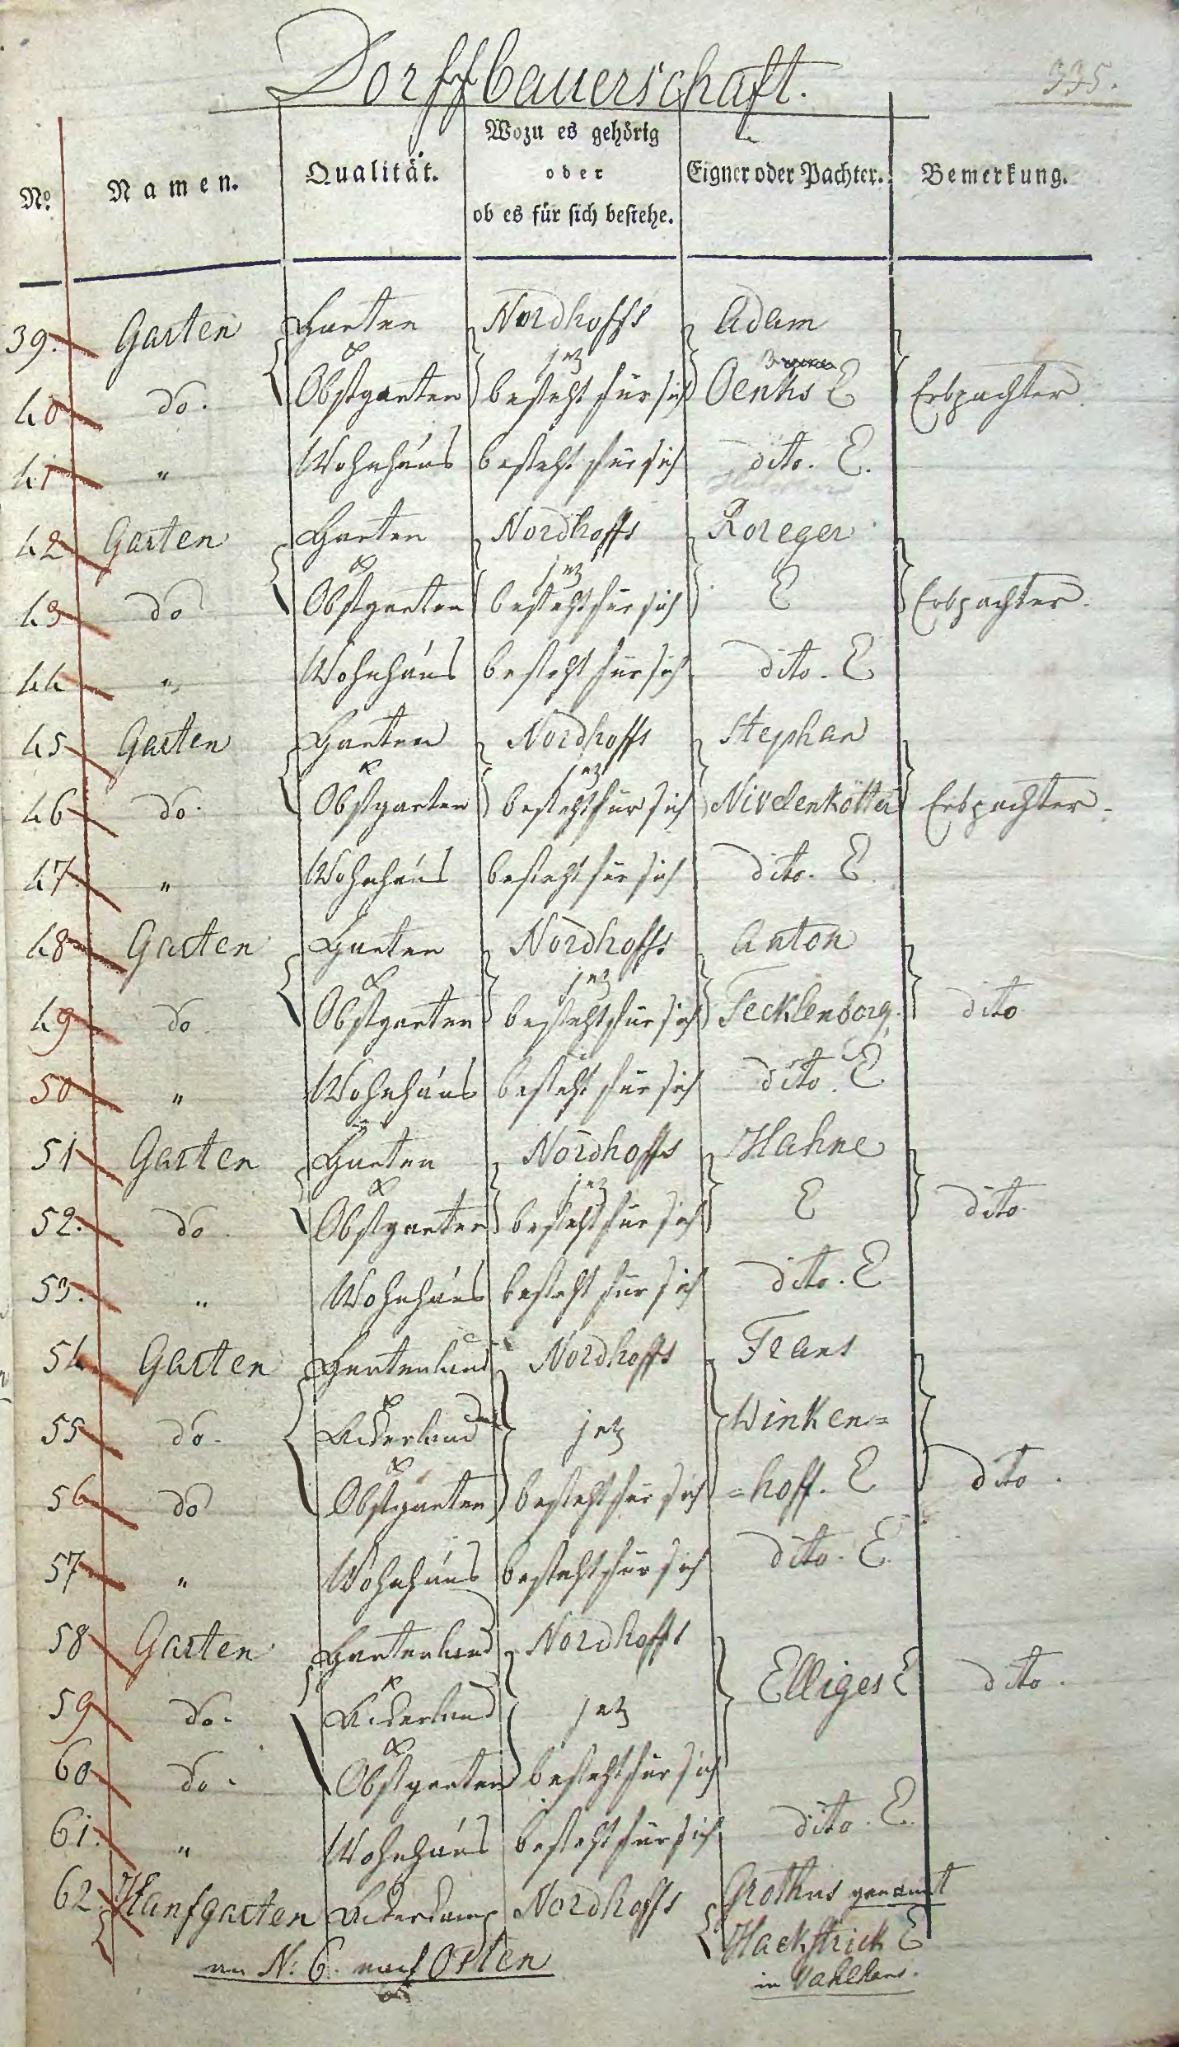 Dorffbauerschaft.
335.
No. Namen. Qualität. Wozu es gehörig oder ob es für sich bestehe. Eigner oder Pachter. Bemerkung.
39. Garten Garten Nordhoffs Adam
& jetz
40 do. Obstgarten besteht für sich Oenks E Erbpachter.
41 " Wohnhaus besteht für sich dito. E.
42 Garten Garten Nordhoffs Roreger
& jetz
43 do Obstgarten besteht für sich E Erbpachter.
44 " Wohnhaus besteht für sich dito. E
45 Garten Garten Nordhoffs Stephan
& jetz
46 do. Obstgarten besteht für sich Nivelenkötter Erbpachter.
47. " Wohnhaus besteht für sich dito. E.
48 Garten Garten Nordhoffs Anton
& jetz
49 do Obstgarten besteht für sich Tecklenborg. dito
50 " Wohnhaus besteht für sich dito. E
51 Garten Garten Nordhoffs Hahne
& jetz
52. do Obstgarten besteht für sich E dito.
53. " Wohnhaus besteht für sich dito. E
54 Garten Gartenland Nordhoffs Frans
&
55 do. Ackerland jetz Winken=
&
56 do Obstgarten besteht für sich =hoff. E dito.
57 " Wohnhaus besteht für sich dito. E.
58 Garten Gartenland Nordhoffs
& Elliges E dito.
59 do. Ackerland jetz
&
60 do. Obstgarten besteht für sich
61. " Wohnhaus besteht für sich dito. E.
62 Hanfgarten Ackerkamp Nordhoffs Grothus genannt
Hackstrick E
an N: 6. nach Osten
in